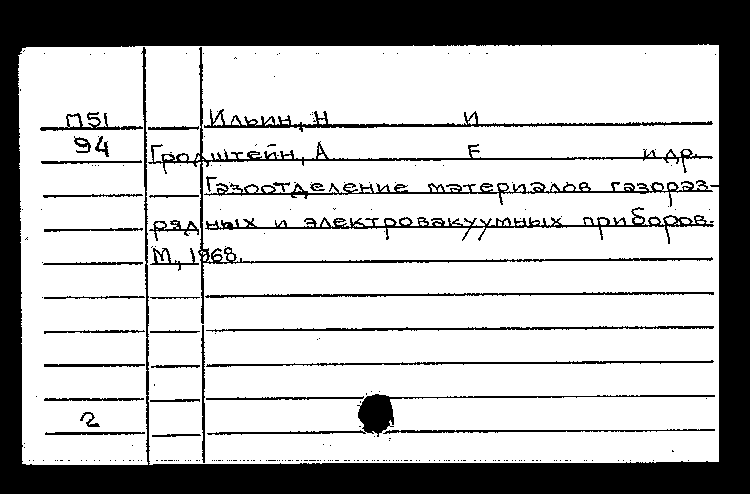 П51 Ильин, Н И
94 Гродштейн, А Е и др.
Газоотделение материалов газораз-
рядных и электровакуумных приборов.
М., 1968.
2